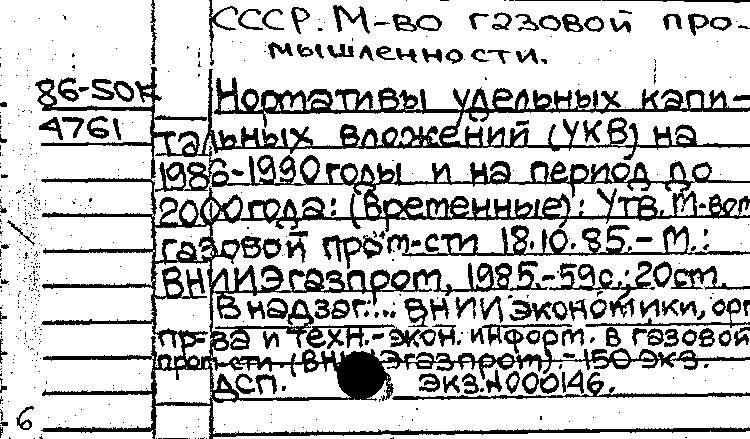 СССР. М-во газовой про-
мышленности.
86-50к
4761
Нормативы удельных капи-
тальных вложений (УКВ) на
1986-1990 годы и на период до
2000 года: (Временные): Утв. М-вом
газовой пром-сти 18.10.85.- М.:
ВНИИЭгазпром, 1985.-59с.; 20см.
В надзаг.:. ВНИИ экономики, орг.
пр-ва и техн.-экон. информ. в газовой
пром-сти (ВНИИЭгазпром).-150 экз.
ДСП. Экз.N000146.
6